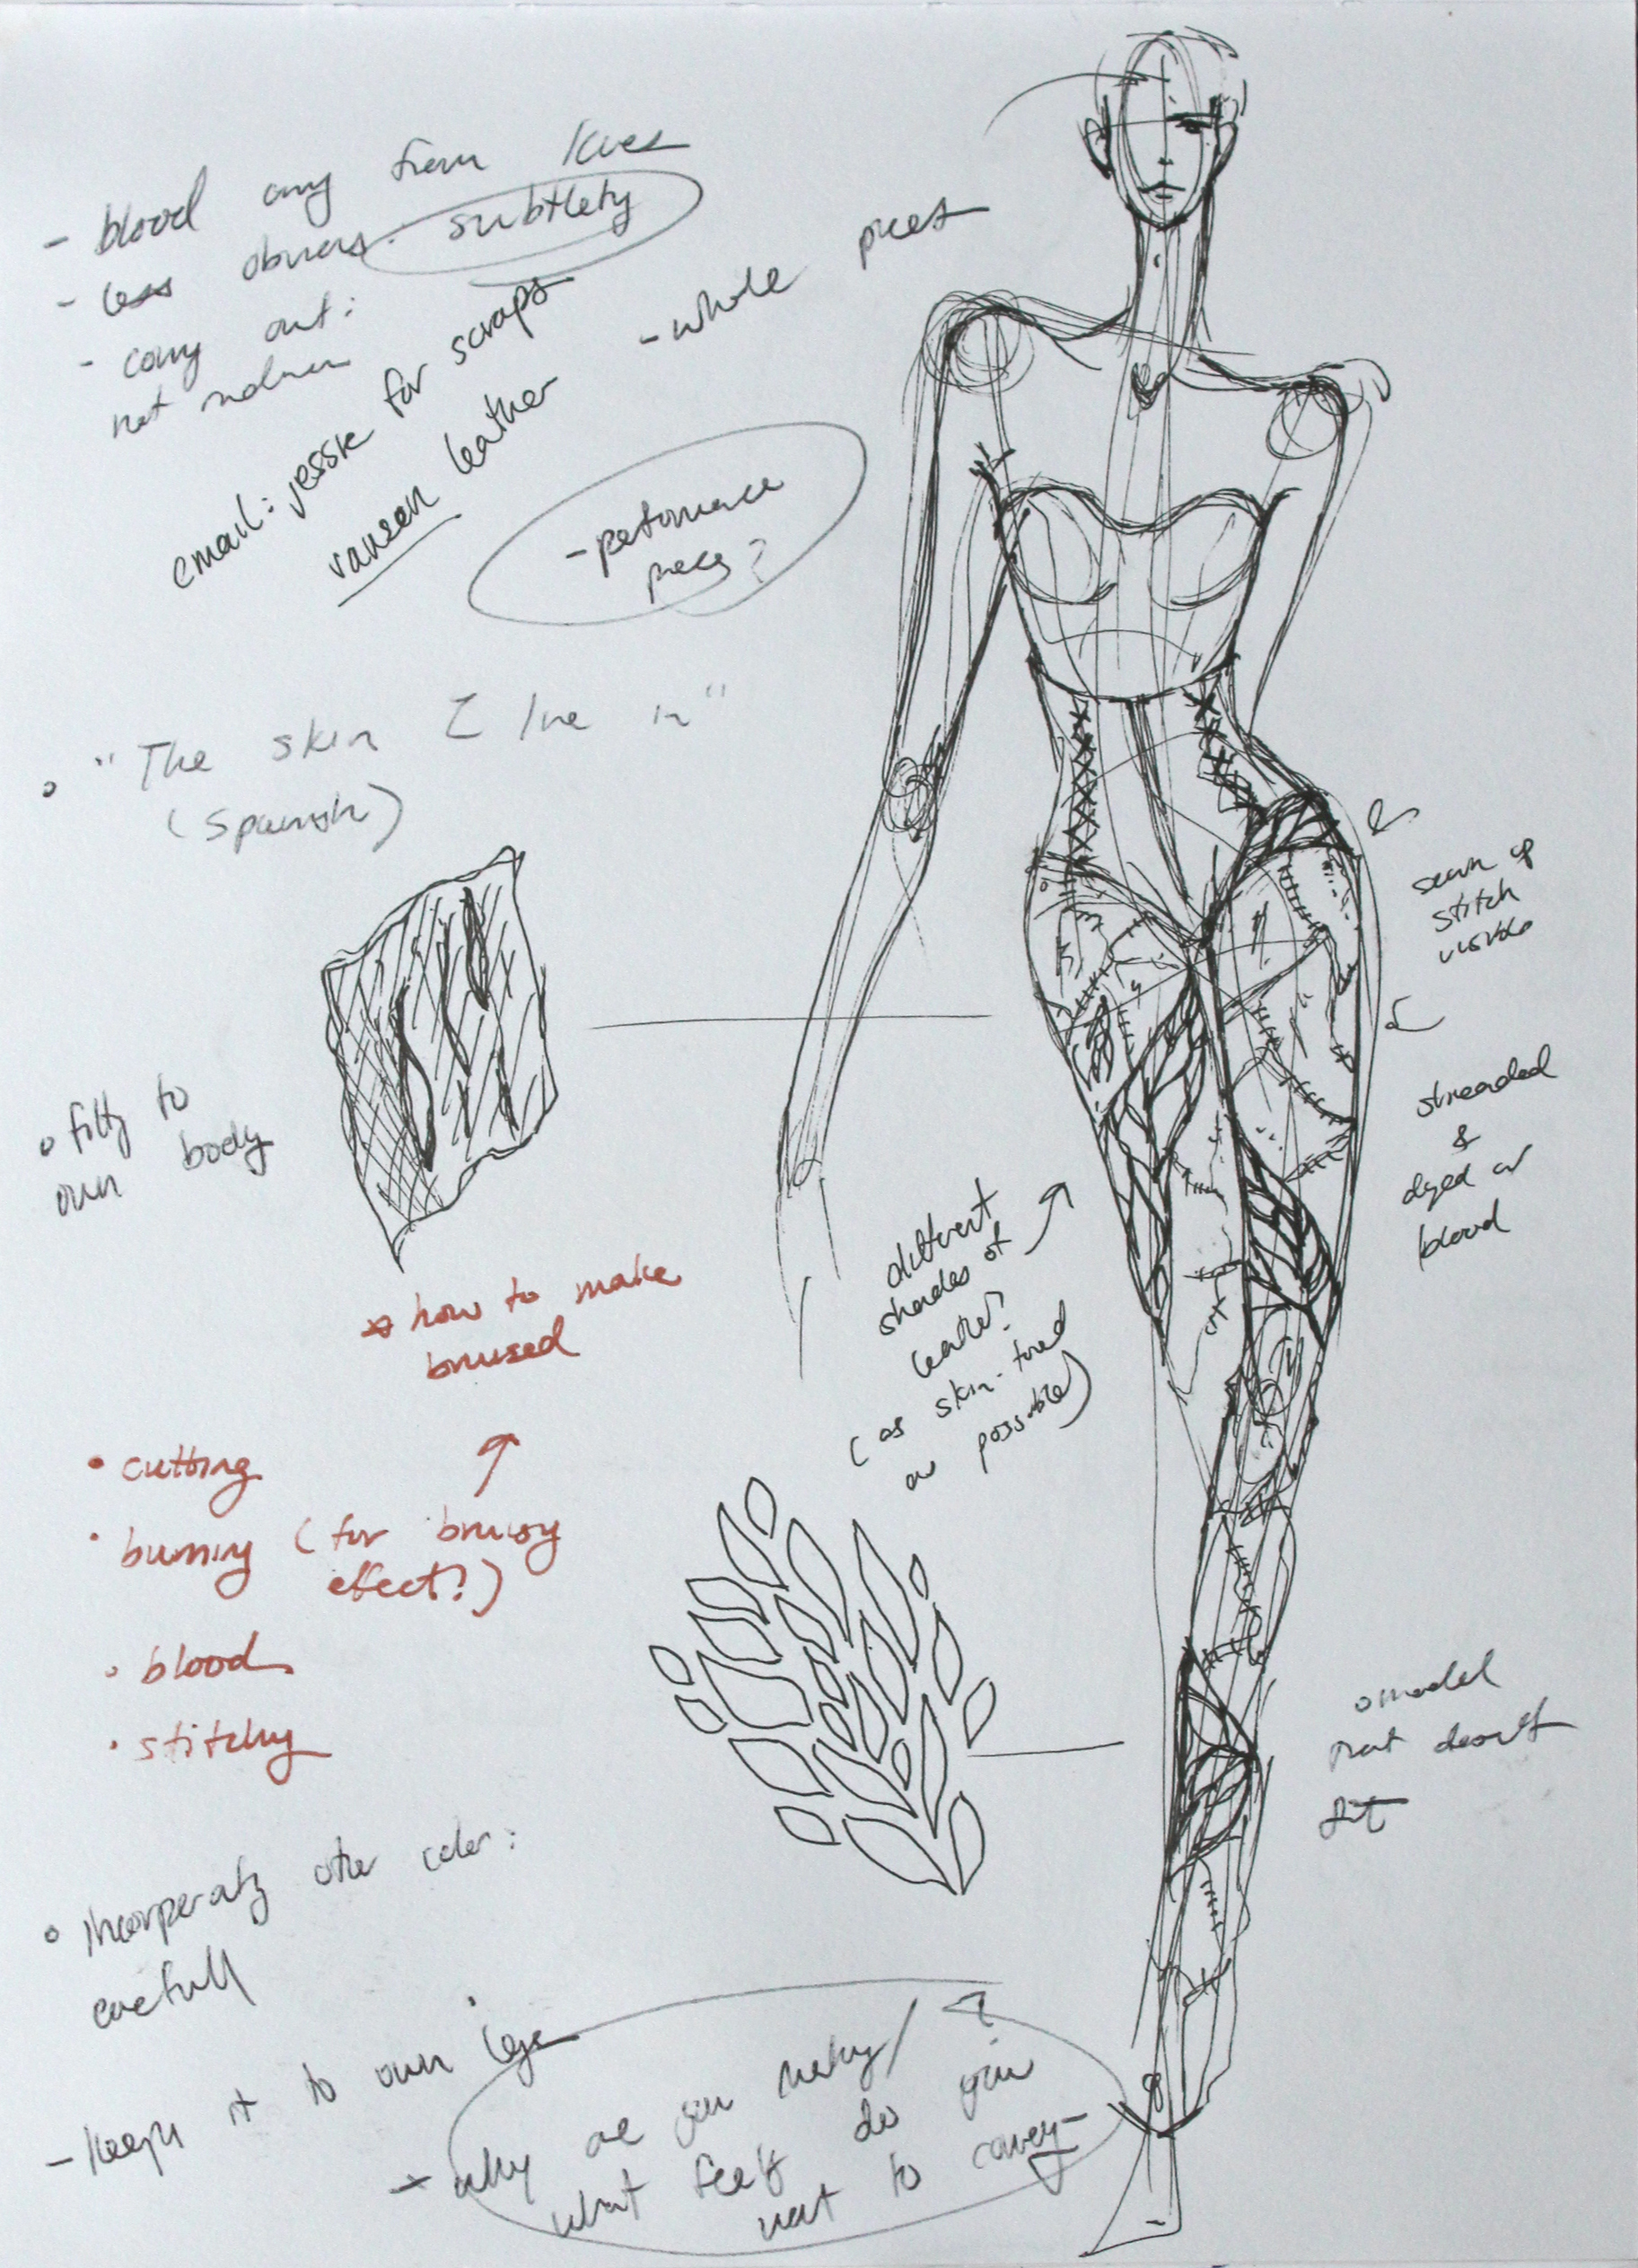 - blood away from knees
- less obvious. subtlety
- carry out:
not
email: jessie for scraps
vansen leather
- whole pieces
- performace
piece?
° "The skin I live in"
(spanish)
seam of
stitch
visible
° fitty to
own body
shreaded
&
dyed as
blood
different
shades of
leather?
(as skin-toned
as possible)
* how to make
bruised
• cutting
• burning (for bruisy
effect?)
• blood
• stitchy
° model
that doesn't
fit
° incorperatig other color:
carefull
- keepig it to own legs
- why are you makig/
what feelg do you
want to convey